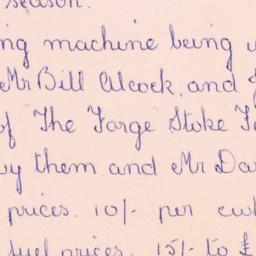 season.
ng machine being
Mr Bill Alcock, and
of The Forge Stoke
them, and Mr Da
prices. 10/- per cwt
fuel prices. 15/- to £